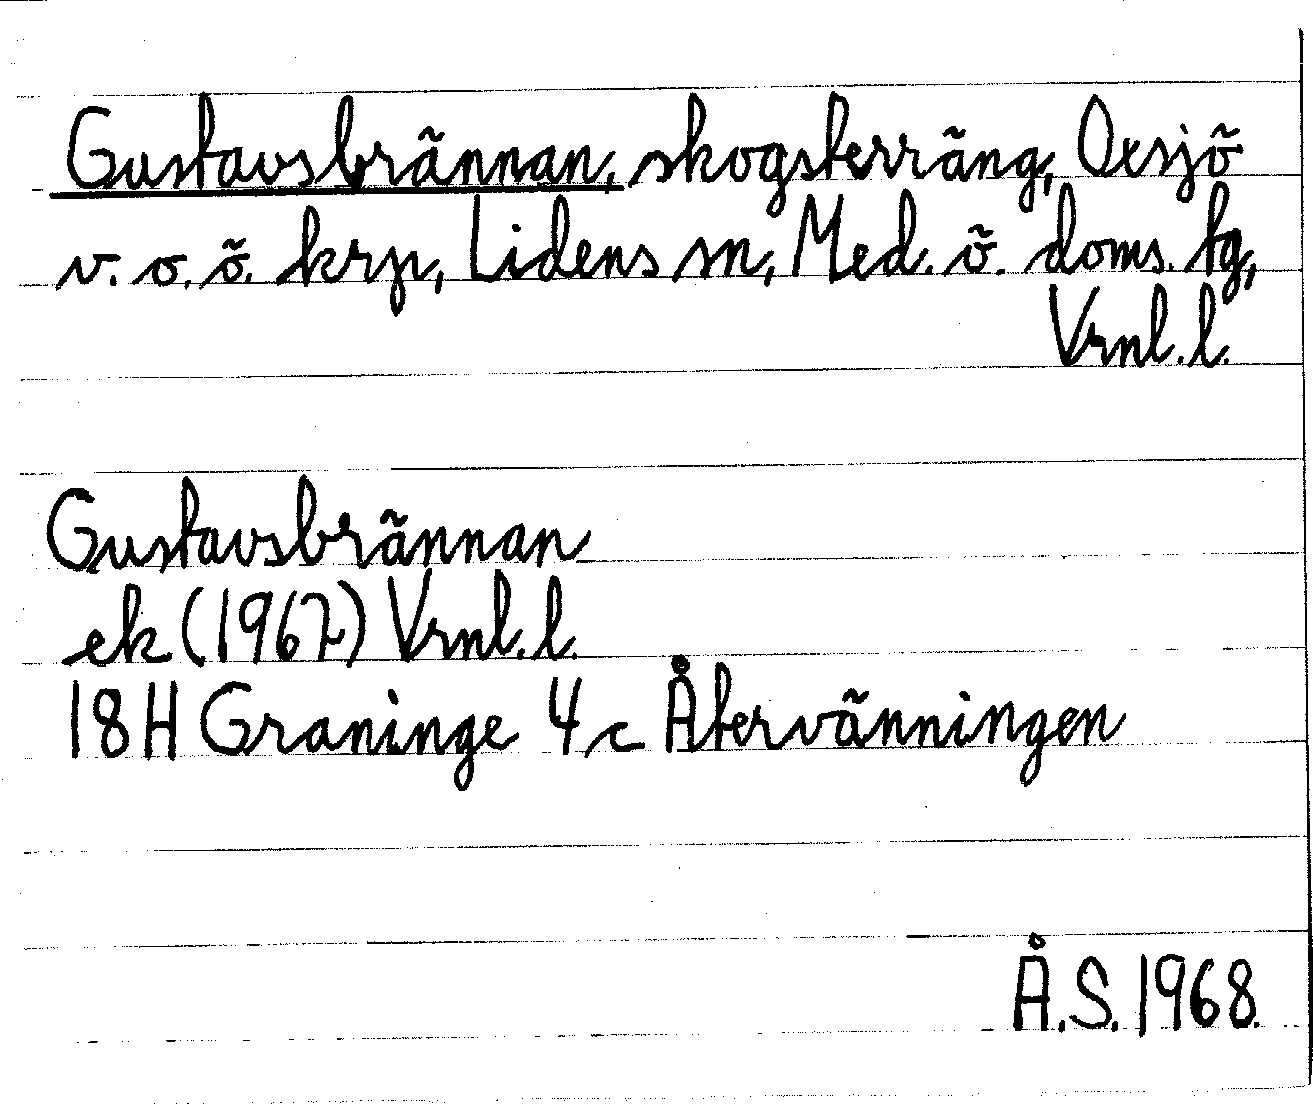 Gustavsbrännan, skogsterräng, Oxsjö
v. o. ö. krp, Lidens sn, Med. ö. doms. tg,
Vrnl. l.
Gustavsbrännan
ek (1967) Vrnl. l.
18H Graninge 4c Återvänningen
Å.S. 1968.